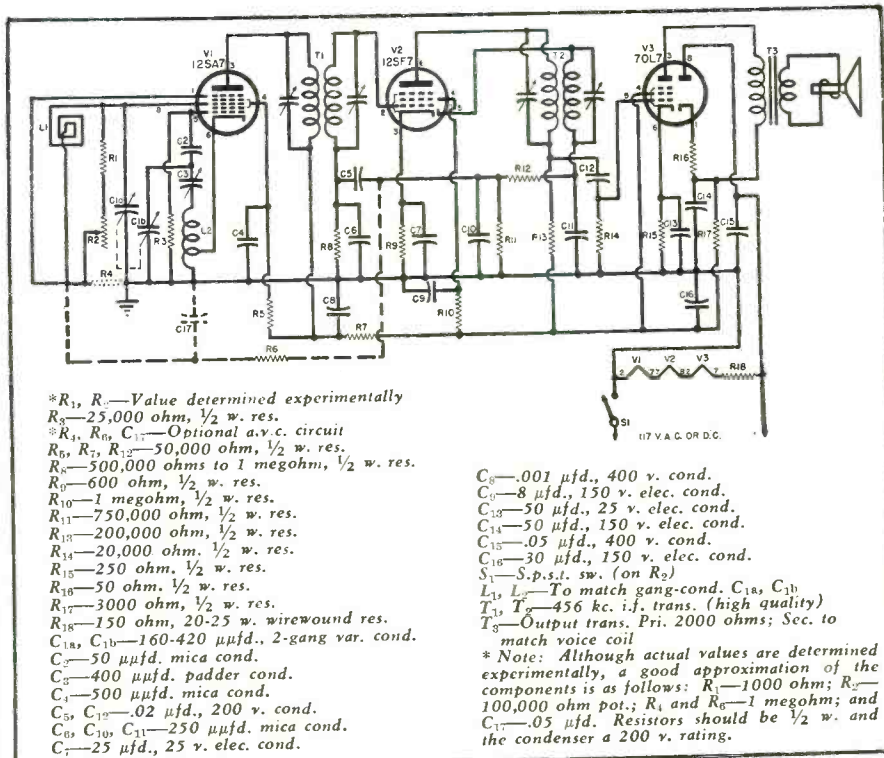 V1
12SA7
T1
V2
12SF7
T2
V3
70L7
T3
3
1
8
4
5
6
L1
R1
C2
C3
C1a
C1b
R2
R3
L2
R4
C4
C17
R5
R6
C5
R8
C6
C8
R7
2
4
5
3
R9
C7
C9
R10
C10
R11
R12
R13
C11
C12
R14
3
8
5
4
6
1
R15
C13
R16
C14
R17
C15
C16
V1
V2
V3
2
7
7
8
2
7
R18
S1
117 V. A.C. OR D.C.
*R₁, R₂—Value determined experimentally
R₃—25,000 ohm, ½ w. res.
*R₄, R₆, C₁₇—Optional a.v.c. circuit
R₅, R₇, R₁₂—50,000 ohm, ½ w. res.
R₈—500,000 ohms to 1 megohm, ½ w. res.
R₉—600 ohm, ½ w. res.
R₁₀—1 megohm, ½ w. res.
R₁₁—750,000 ohm, ½ w. res.
R₁₃—200,000 ohm, ½ w. res.
R₁₄—20,000 ohm. ½ w. res.
R₁₅—250 ohm. ½ w. res.
R₁₆—50 ohm. ½ w. res.
R₁₇—3000 ohm, ½ w. res.
R₁₈—150 ohm, 20-25 w. wirewound res.
C₁ₐ, C₁b—160-420 μμfd., 2-gang var. cond.
C₂—50 μμfd. mica cond.
C₃—400 μμfd. padder cond.
C₄—500 μμfd. mica cond.
C₅, C₁₂—.02 μfd., 200 v. cond.
C₆, C₁₀, C₁₁—250 μμfd. mica cond.
C₇—25 μfd., 25 v. elec. cond.
C₈—.001 μfd., 400 v. cond.
C₉—8 μfd., 150 v. elec. cond.
C₁₃—50 μfd., 25 v. elec. cond.
C₁₄—50 μfd., 150 v. elec. cond.
C₁₅—.05 μfd., 400 v. cond.
C₁₆—30 μfd., 150 v. elec. cond.
S₁—S.p.s.t. sw. (on R₂)
L₁, L₂—To match gang-cond. C₁ₐ, C₁b
T₁, T₂—456 kc. i.f. trans. (high quality)
T₃—Output trans. Pri. 2000 ohms; Sec. to
match voice coil
* Note: Although actual values are determined
experimentally, a good approximation of the
components is as follows: R₁—1000 ohm; R₂—
100,000 ohm pot.; R₄ and R₆—1 megohm; and
C₁₇—.05 μfd. Resistors should be ½ w. and
the condenser a 200 v. rating.